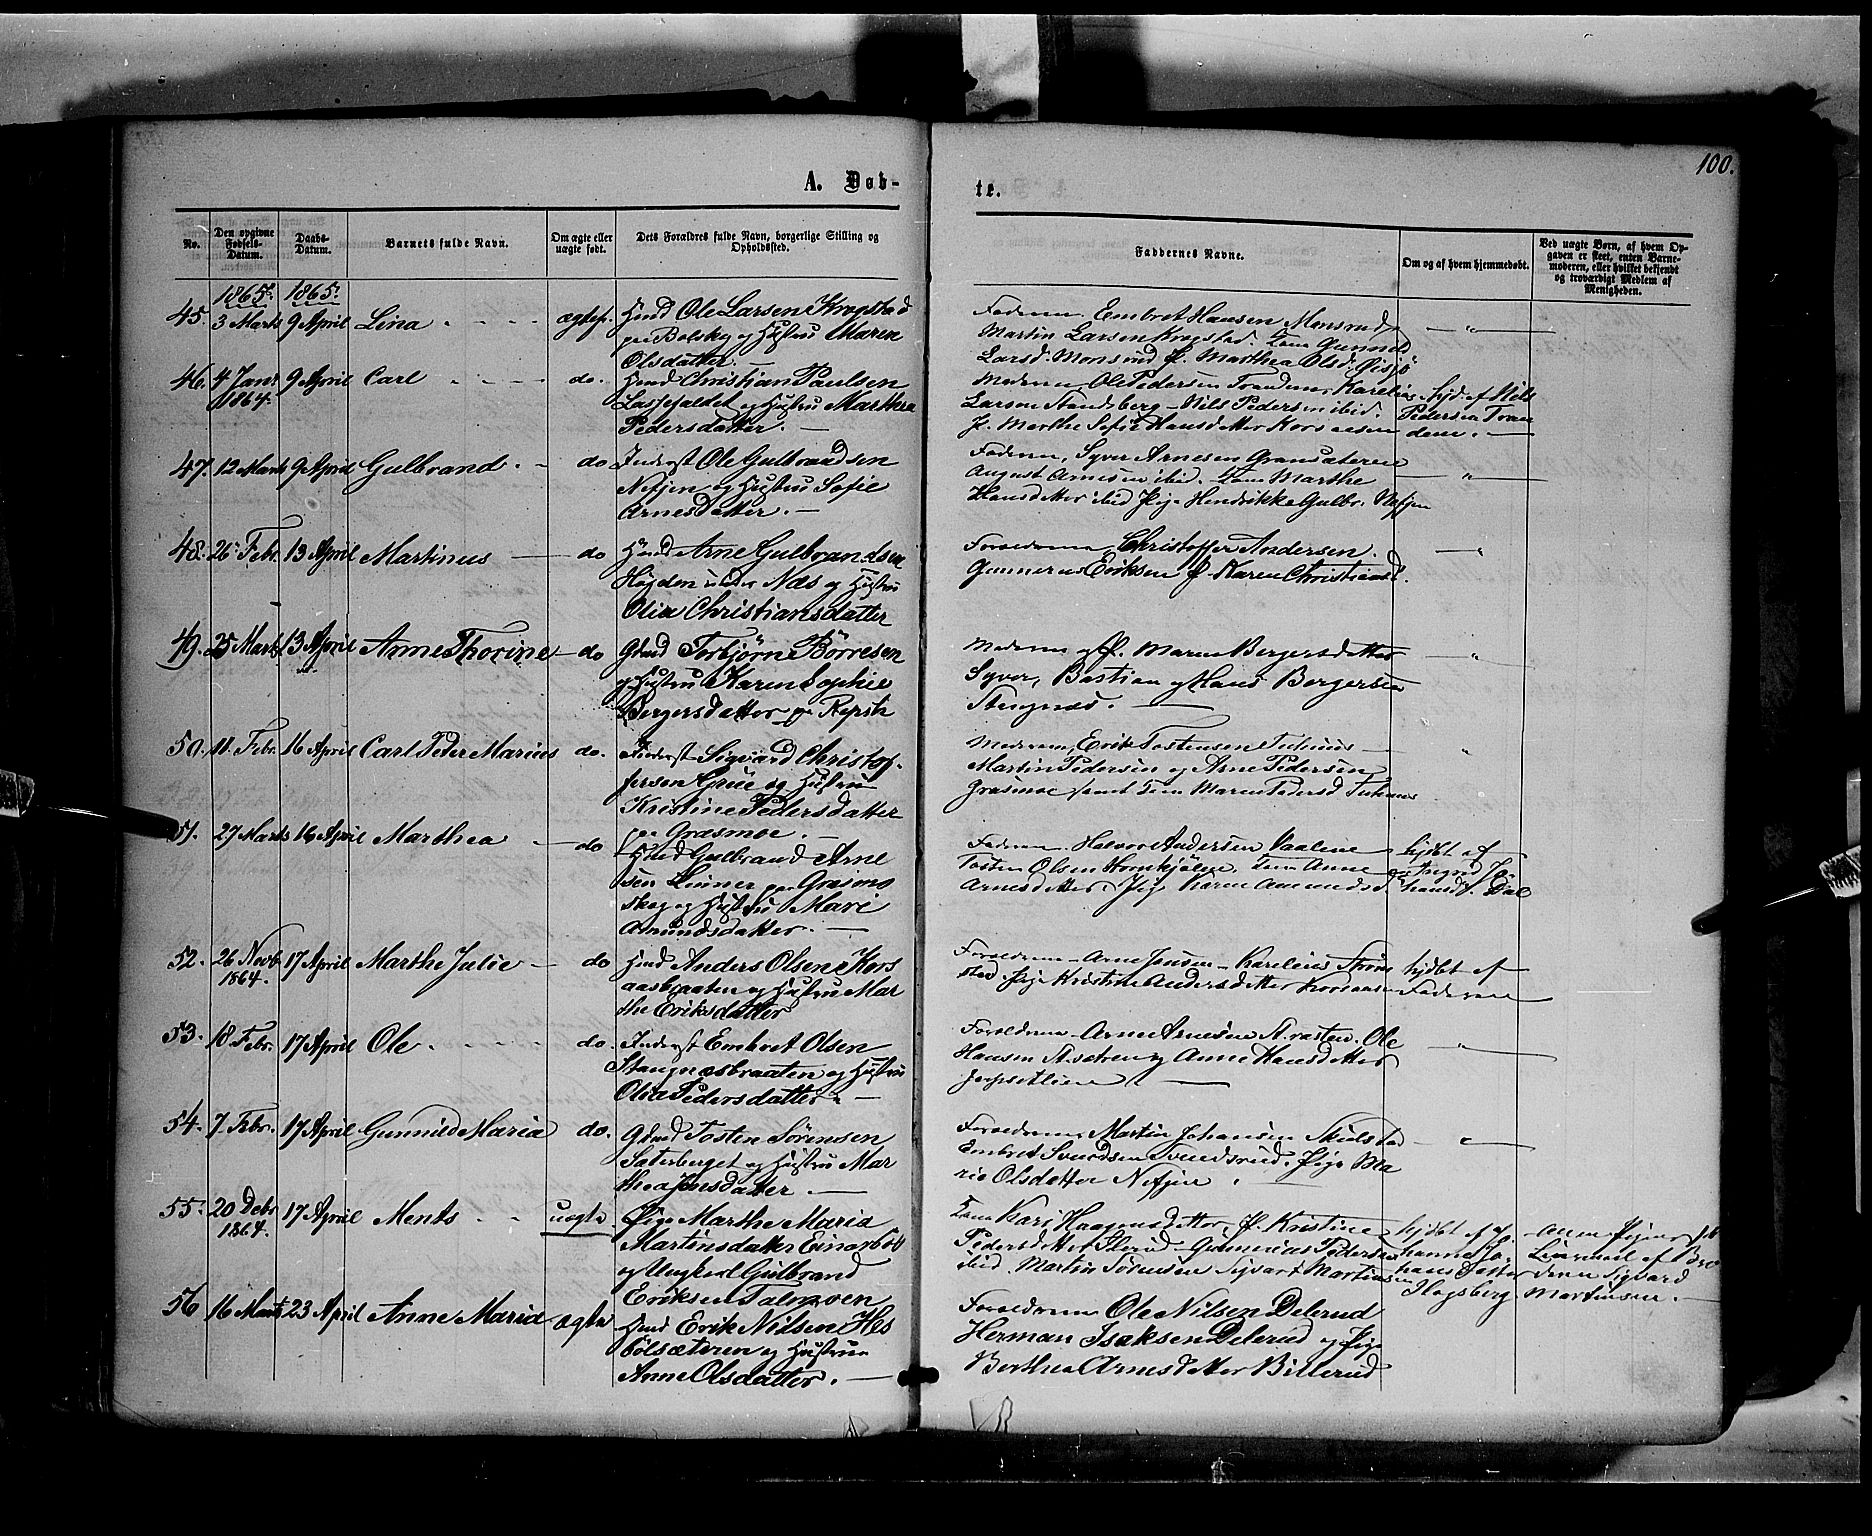 100.
A. Døb-
te.
No.
Den opgivne Fødsels-Datum.
Daabs-Datum.
Barnets fulde Navn.
Om ægte eller uægte født.
Dets Forældres fulde Navn, borgerlige Stilling og Opholdssted.
Faddernes Navne.
Om og af hvem hjemmedøbt.
Ved uægte Børn, af hvem Opgaven er skeet, enten Barnemoderen, eller hvilket bekjendt og troværdigt Medlem af Menigheden.
1865. 1865.
45. 3 Marts 9 April Lina ægtef.
Hmd Ole Larsen Krogstad
paa og Hustru Maren
Olsdatter.
Faderen Embret Hansen Monsrud
Martin Larsen Krogstad. Kone Gunnild
Larsd. Monsrud P. Marthea Olsd.
46. 4 Janr 1864. 9 April Carl do.
Hmd Christian Paulsen
og Hustru Marthea
Pedersdatter.
Moderen Ole Pedersen Karelius
Larsen Strandsberg Nils Pedersen ibid.
P. Marthe Sofie Hansdatter Korsaasen
hjd. af Nils
Pedersen Tran
dem.
47. 12 Marts 9 April Gulbrand do
Inderst Ole Gulbrandsen
Nesjen og Hustru Sofie
Arnesdatter.
Faderen, Syver Arnesen Gransæteren
August Arnesen ibid. Kone Marthe
Hansdatter ibid Pige Hendrikke Gulbr. Nesjen
48. 26 Febr. 13 April Martinus do
Hmd Arne Gulbrandsen
Hagden under Næs og Hustru
Olia Christiansdatter
Forældrene, Christoffer Andersen.
Gunnerus Eriksen P. Karen Christiansd.
49. 25 Marts 13 April Anne Thorine do
Gmd Torbjørn Børresen
og Hustru Karen Sophie
Bergersdatter paa
Moderen og P. Maren Bergersdatter
Syver, Bastian og Hans Bergersen
Stengnæs.
50. 11. Febr. 16 April Carl Peder Marius do.
Inderst Sigvard Christof-
fersen Grue og Hustru
Kristine Pedersdatter
paa Græsmoe.
Moderen, Erik Tostensen
Martin Pedersen og Arne Pedersen
Græsmoe samt Kone Maren Pedersd
51. 27 Marts 16 April Marthea do
Hmd Gulbrand Arne
sen Linner paa Græsmo
skog og Hustru Mari
Amundsdatter.
Faderen, Halvor Andersen Vaalene
Tosten Olsen Kone Anne
Arnesdatter. Pige Karen Amundsd
hjdbt af
52. 26 Novb. 1864. 17 April Marthe Julie do
Hmd Anders Olsen Kors
aasbraaten og Hustru Mar
the Eriksdatter
Forældrene Arne Jensen Karelius
Pige Kristine Andersdatter Korsaasen
hjdbt af
Faderen
53. 18 Febr. 17 April Ole do.
Inderst Embret Olsen
Stangnæsbraaten og Hustru
Olia Pedersdatter.
Forældrene Arne Arnesen Ole
Hansen og Anne Hansdatter
54. 7 Febr. 17 April Gunnild Maria do.
Gmd Tosten Sørensen
Sæterberget og Hustru Mar
thea Jensdatter.
Forældrene, Martin Johansen
Embret Svendsen Svendsrud. Pige Ma
rie Olsdatter Nesjen.
55. 20 Debr 1864. 17 April Ments uægte
Pige Marthe Maria
Martinsdatter
og Ungkarl Gulbrand
Eriksen
Kone Kari Haagensdatter, P. Kristine
Pedersdatter Gunnerius Pedersen
ibid. Martin Sørensen Sigvart Martinsen
hjdbt af
Johanne Jo
hansdatter
Hagsberg
af Bro
deren Sigvard
Martinsen.
56 16 Marts 23 April Anne Maria ægte
Hmd Erik Nilsen Hes
bølsæteren og Hustru
Anne Olsdatter.
Forældrene Ole Nilsen Delerud
Herman Isaksen Delerud og Pige
Berthea Arnesdatter Billerud